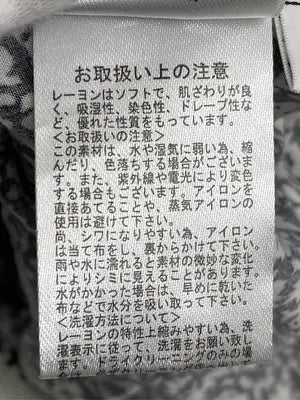 お取扱い上の注意
レーヨンはソフトで、肌ざわりが良
く、吸湿性、染色性、ドレープ性な
ど、優れた性質をもっています。
<お取扱いの注意>
この素材は、水や湿気に弱い為、縮
んだり、色落ちする場合がございま
す。また、紫外線や電光により変色
する場合もございます。アイロンを
直接あてることや、蒸気アイロンの
使用は避けて下さい。
尚、シワになりやすい為、アイロン
は当て布をし、裏からかけて下さい。
雨や水に濡れると素材の微妙な変化
によりシミに見えることがあります。
水がかかった場合は、早めに乾いた
布などで水分を吸い取って下さい。
<洗濯方法について>
レーヨンの特性上縮みやすい為、洗
濯表示に従って、洗濯をお願い致し
ます。ドライクリーニングのみの場